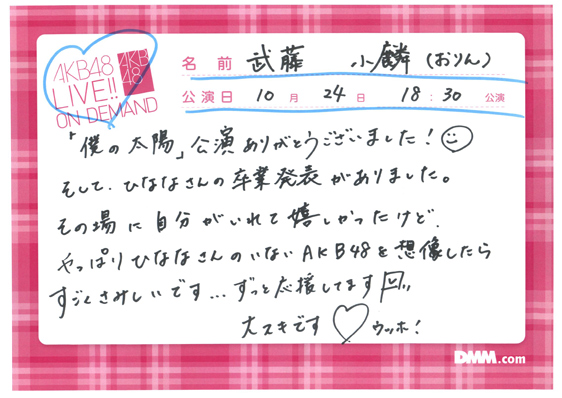 AKB48
LIVE!!
ON DEMAND
AKB
48
名前 武藤 小麟(おりん)
公演日 10月 24日 18:30 公演
「僕の太陽」公演ありがとうございました!
そして、ひななさんの卒業発表がありました。
その場に自分がいれて嬉しかったけど、
やっぱりひななさんのいないAKB48を想像したら
すごくさみしいです...ずっと応援してます
大スキです♡ウッホ!
DMM.com